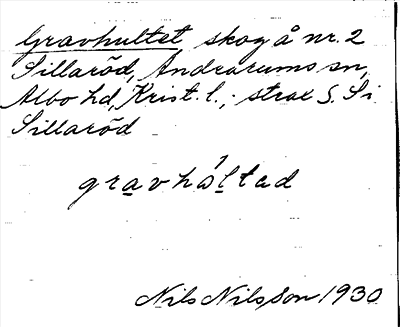 Gravhultet skog å nr. 2
Sillaröd, Andrarums sn,
Albo hd, Krist. l.; strax S. Si
Sillaröd
gravhúltad
Nils Nilsson 1930